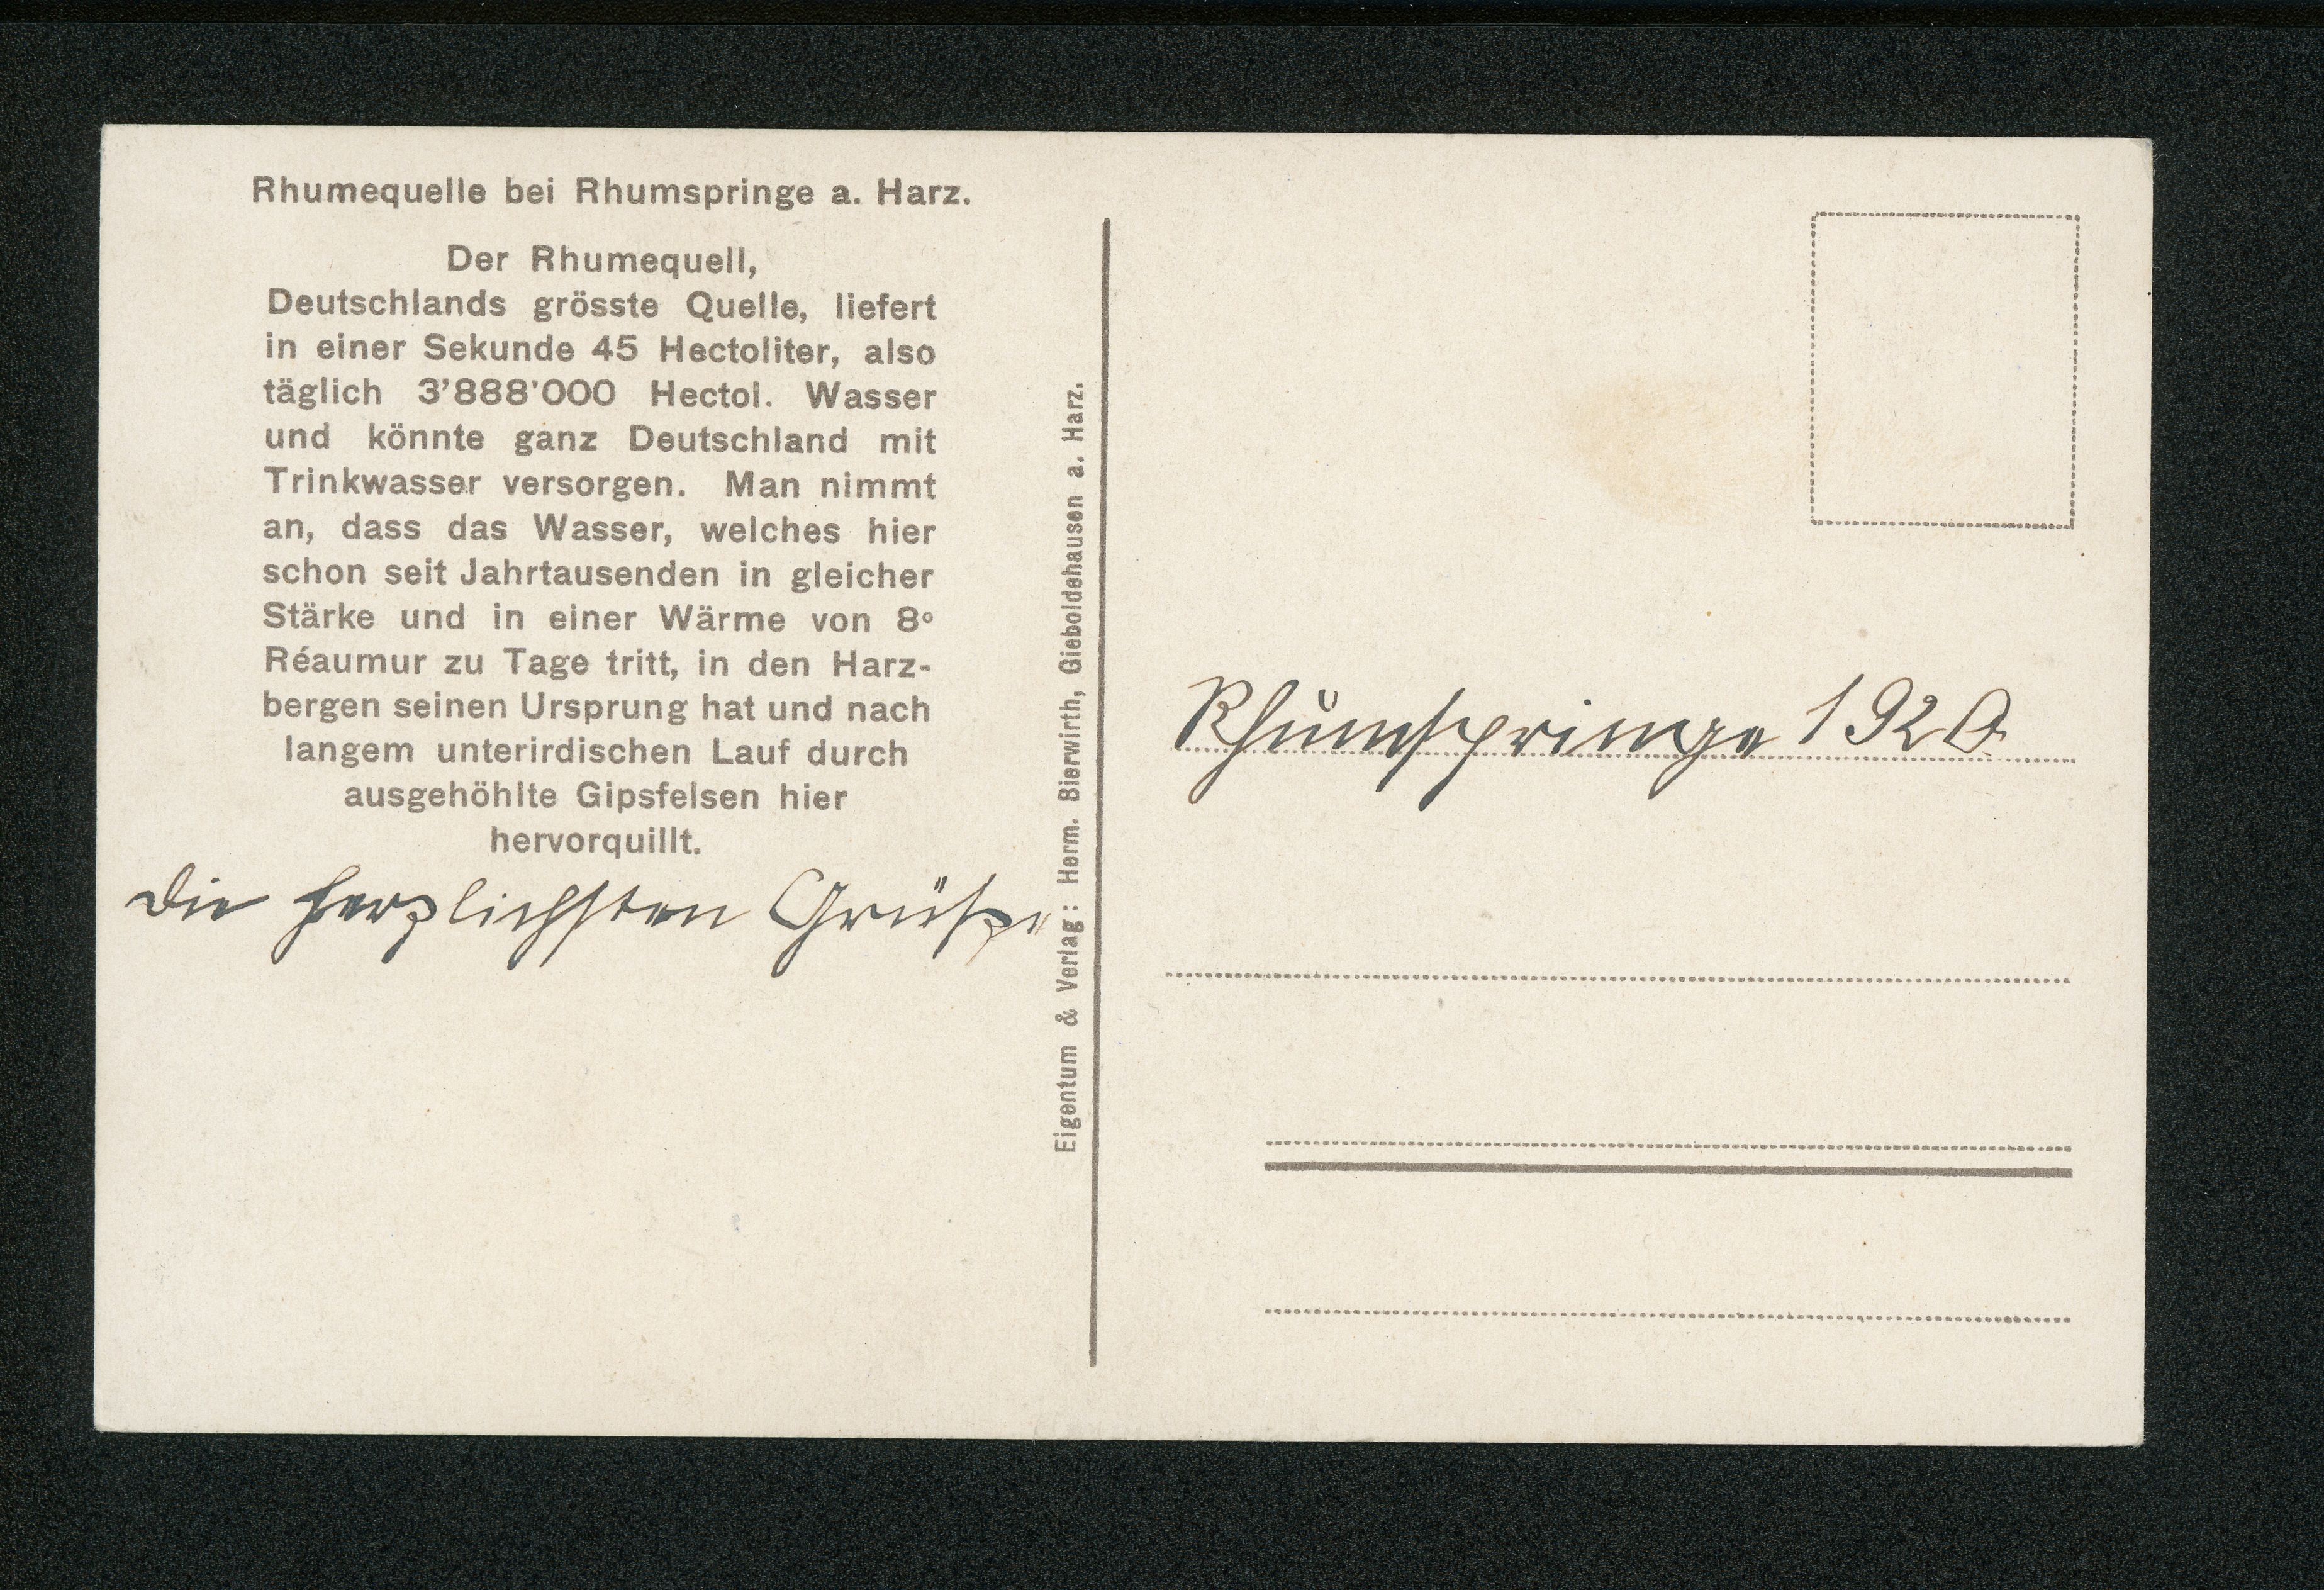 Rhumequelle bei Rhumspringe a. Harz.
Der Rhumequell,
Deutschlands grösste Quelle, liefert
in einer Sekunde 45 Hectoliter, also
täglich 3'888'000 Hectol. Wasser
und könnte ganz Deutschland mit
Trinkwasser versorgen. Man nimmt
an, dass das Wasser, welches hier
schon seit Jahrtausenden in gleicher
Stärke und in einer Wärme von 8°
Réaumur zu Tage tritt, in den Harz-
bergen seinen Ursprung hat und nach
langem unterirdischen Lauf durch
ausgehöhlte Gipsfelsen hier
hervorquillt.
Die herzlichsten Grüße
Eigentum & Verlag: Herm. Bierwirth, Gieboldehausen a. Harz.
Rhumspringe 1920.